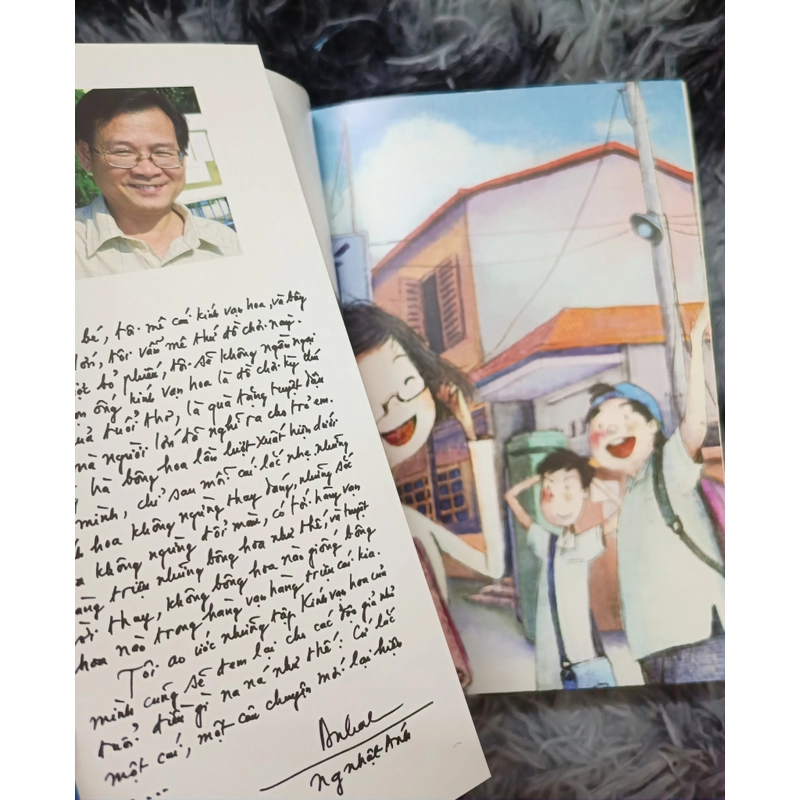 bé, tôi mê cái kính vạn hoa, và bây
lớn, tôi vẫn mê thứ đồ chơi này.
bỏ phiếu, tôi sẽ không ngần ngại
ống kính vạn hoa là đồ chơi kỳ thú
tuổi thơ, là quà tặng tuyệt diệu
mà người lớn đã nghĩ ra cho trẻ em.
hà bông hoa lần lượt xuất hiện dưới
mình, chỉ sau mỗi cái lắc nhẹ. Những
hoa không ngừng thay dáng, những sắc
không ngừng đổi màu, có tới hàng vạn
hàng triệu những bông hoa như thế, và tuyệt
thay, không bông hoa nào giống bông
hoa nào trong hàng vạn hàng triệu cái kia.
Tôi ao ước những tập Kính vạn hoa của
mình cũng sẽ đem lại cho các độc giả nhỏ
tuổi điều gì na ná như thế: Cứ lắc
một cái, một câu chuyện mới lại hiện
....
Ng nhật Ánh